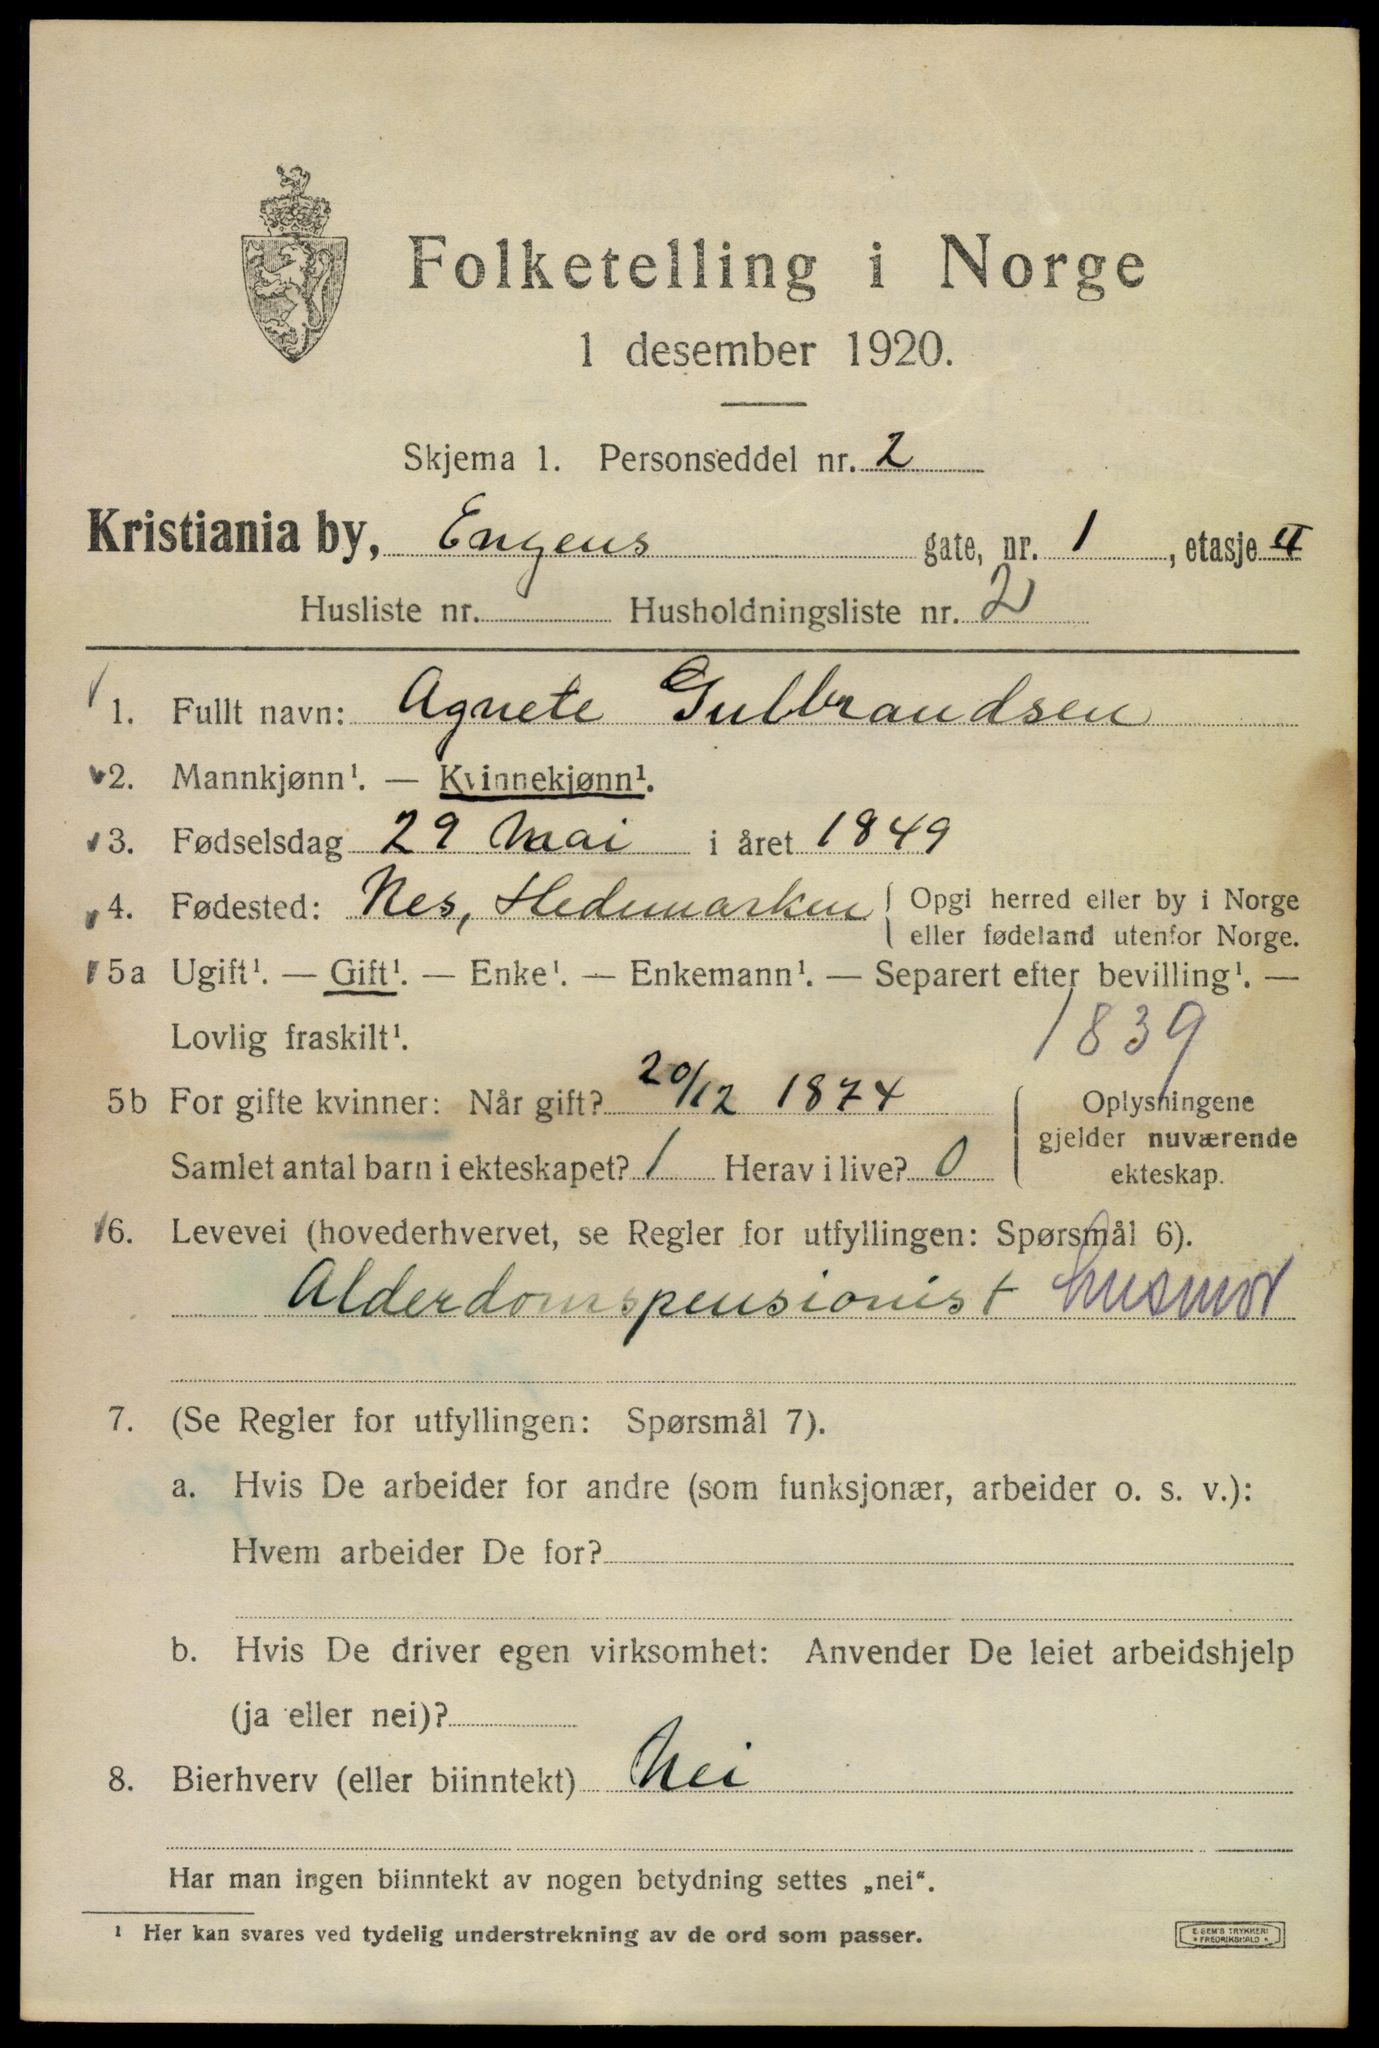 Folketelling i Norge
1 desember 1920.
Skjema 1. Personseddel nr. 2
Kristiania by, Engens gate, nr. 1, etasje II
Husliste nr. Husholdningsliste nr. 2
1. Fullt navn: Agnete Gulbrandsen
2. Mannkjønn¹. — Kvinnekjønn¹.
3. Fødselsdag 29 Mai i året 1849
4. Fødested: Nes, Hedemarken Opgi herred eller by i Norge
eller fødeland utenfor Norge.
5a Ugift¹. — Gift¹. — Enke¹. — Enkemann¹. — Separert efter bevilling¹. —
Lovlig fraskilt¹. 1839
5b For gifte kvinner: Når gift? 20/12 1874 Oplysningene
gjelder nuværende
Samlet antal barn i ekteskapet? 1 Herav i live? 0 ekteskap.
6. Levevei (hovederhvervet, se Regler for utfyllingen: Spørsmål 6).
Alderdomspensionist husmor
7. (Se Regler for utfyllingen: Spørsmål 7).
a. Hvis De arbeider for andre (som funksjonær, arbeider o. s. v.):
Hvem arbeider De for?
b. Hvis De driver egen virksomhet: Anvender De leiet arbeidshjelp
(ja eller nei)?
8. Bierhverv (eller biinntekt) Nei
Har man ingen biinntekt av nogen betydning settes „nei“.
¹ Her kan svares ved tydelig understrekning av de ord som passer.
E. SEM'S TRYKKERI
* FREDRIKSHALD *